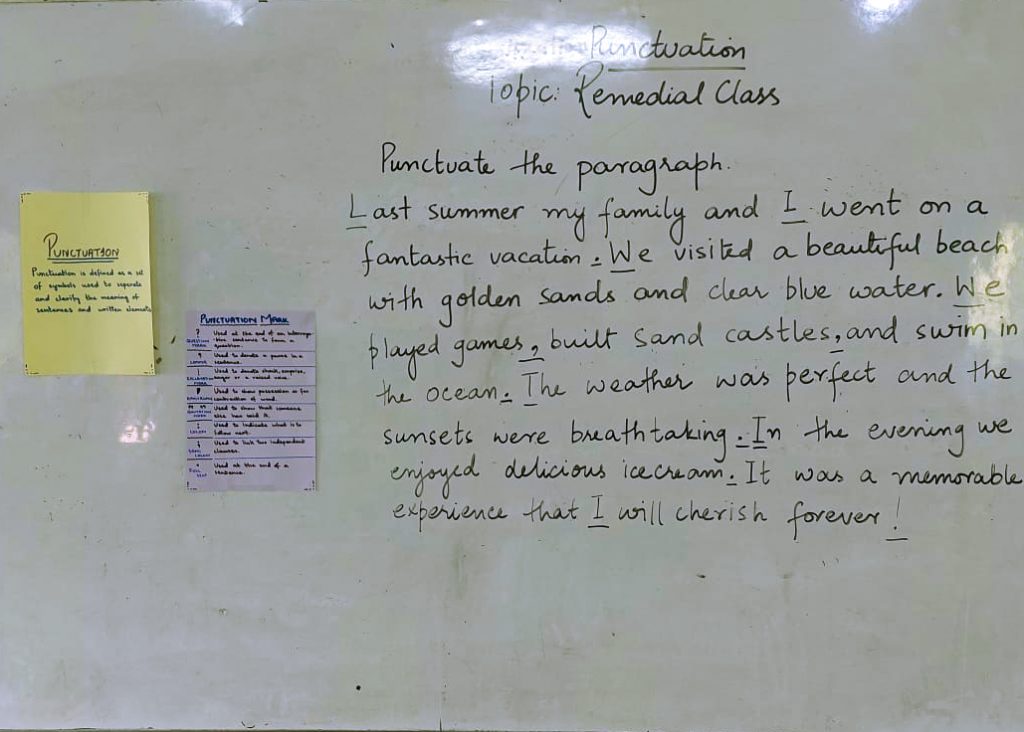 Punctuation
Topic: Remedial Class
Punctuate the paragraph.
Last summer my family and I went on a
fantastic vacation. We visited a beautiful beach
with golden sands and clear blue water. We
played games, built sand castles, and swim in
the ocean. The weather was perfect and the
sunsets were breathtaking. In the evening we
enjoyed delicious icecream. It was a memorable
experience that I will cherish forever!
PUNCTUATION
Punctuation is defined as a set
of symbols used to seperate
and clarify the meaning of
sentences and written elements
PUNCTUATION MARK
? Used at the end of an interroga
QUESTION -tive sentence to form a
MARK question.
, Used to denote a pause in a
COMMA sentence.
! Used to denote shock, surprise,
MARK anger or a raised voice.
Used to show possession or for
contraction of word.
" " Used to show that someone
QUOTATION else has said it.
MARK
: Used to indicate what is to
COLON follow next.
; Used to link two independent
SEMI clauses.
COLON
. Used at the end of a
FULL sentence.
STOP